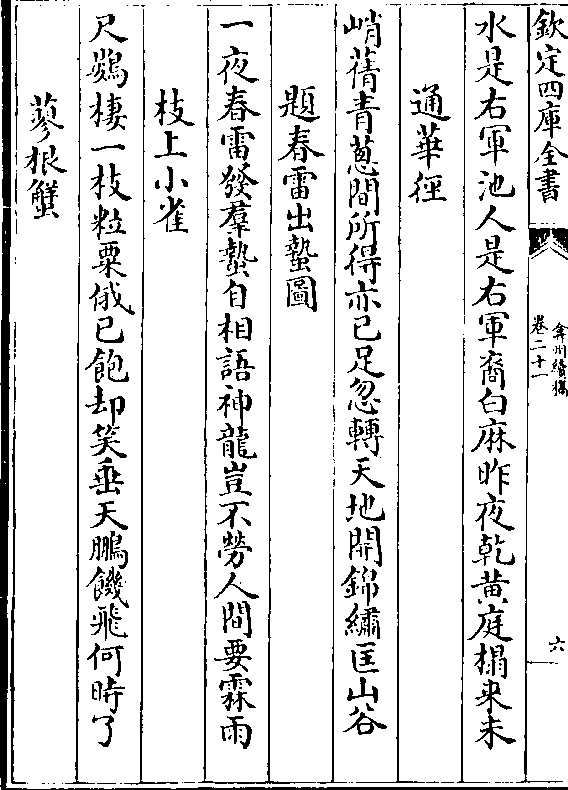 欽定四庫全書
弇州續稿
卷二十一
六
水是右軍池人是右軍裔白麻昨夜乾黄庭榻来未
通華徑
峭蒨青蔥間所得亦已足忽轉天地開錦繡匡山谷
題春雷出蟄圖
一夜春雷發羣蟄自相語神龍豈不勞人間要霖雨
枝上小雀
尺鷃棲一枝粒粟俄已飽却笑垂天鵬饑飛何時了
蓼根蟹